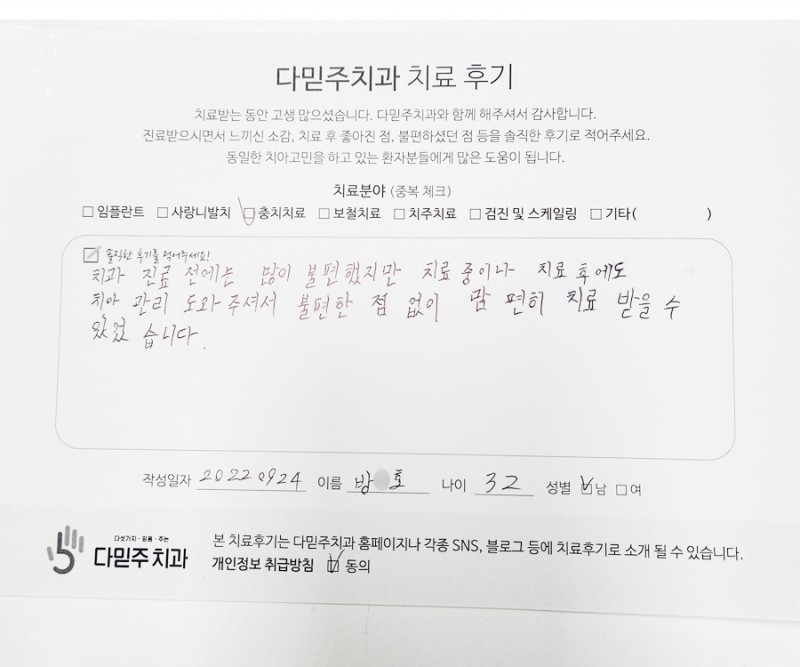 다믿주치과 치료 후기
치료받는 동안 고생 많으셨습니다. 다믿주치과와 함께 해주셔서 감사합니다.
진료받으시면서 느끼신 소감, 치료 후 좋아진 점, 불편하셨던 점 등을 솔직한 후기로 적어주세요.
동일한 치아고민을 하고 있는 환자분들에게 많은 도움이 됩니다.
치료분야 (중복 체크)
□ 임플란트 □ 사랑니발치 ☑ 충치치료 □ 보철치료 □ 치주치료 □ 검진 및 스케일링 □ 기타( )
솔직한 후기를 적어주세요!
치과 진료 전에는 많이 불편했지만 치료 중이나 치료 후에도
치아 관리 도와주셔서 불편한 점 없이 맘 편히 치료 받을 수
있었습니다.
작성일자 20220924 이름 방 호 나이 32 성별 ☑남 □여
다섯가지·믿음·주는
다믿주치과
본 치료후기는 다믿주치과 홈페이지나 각종 SNS, 블로그 등에 치료후기로 소개 될 수 있습니다.
개인정보 취급방침 ☑ 동의